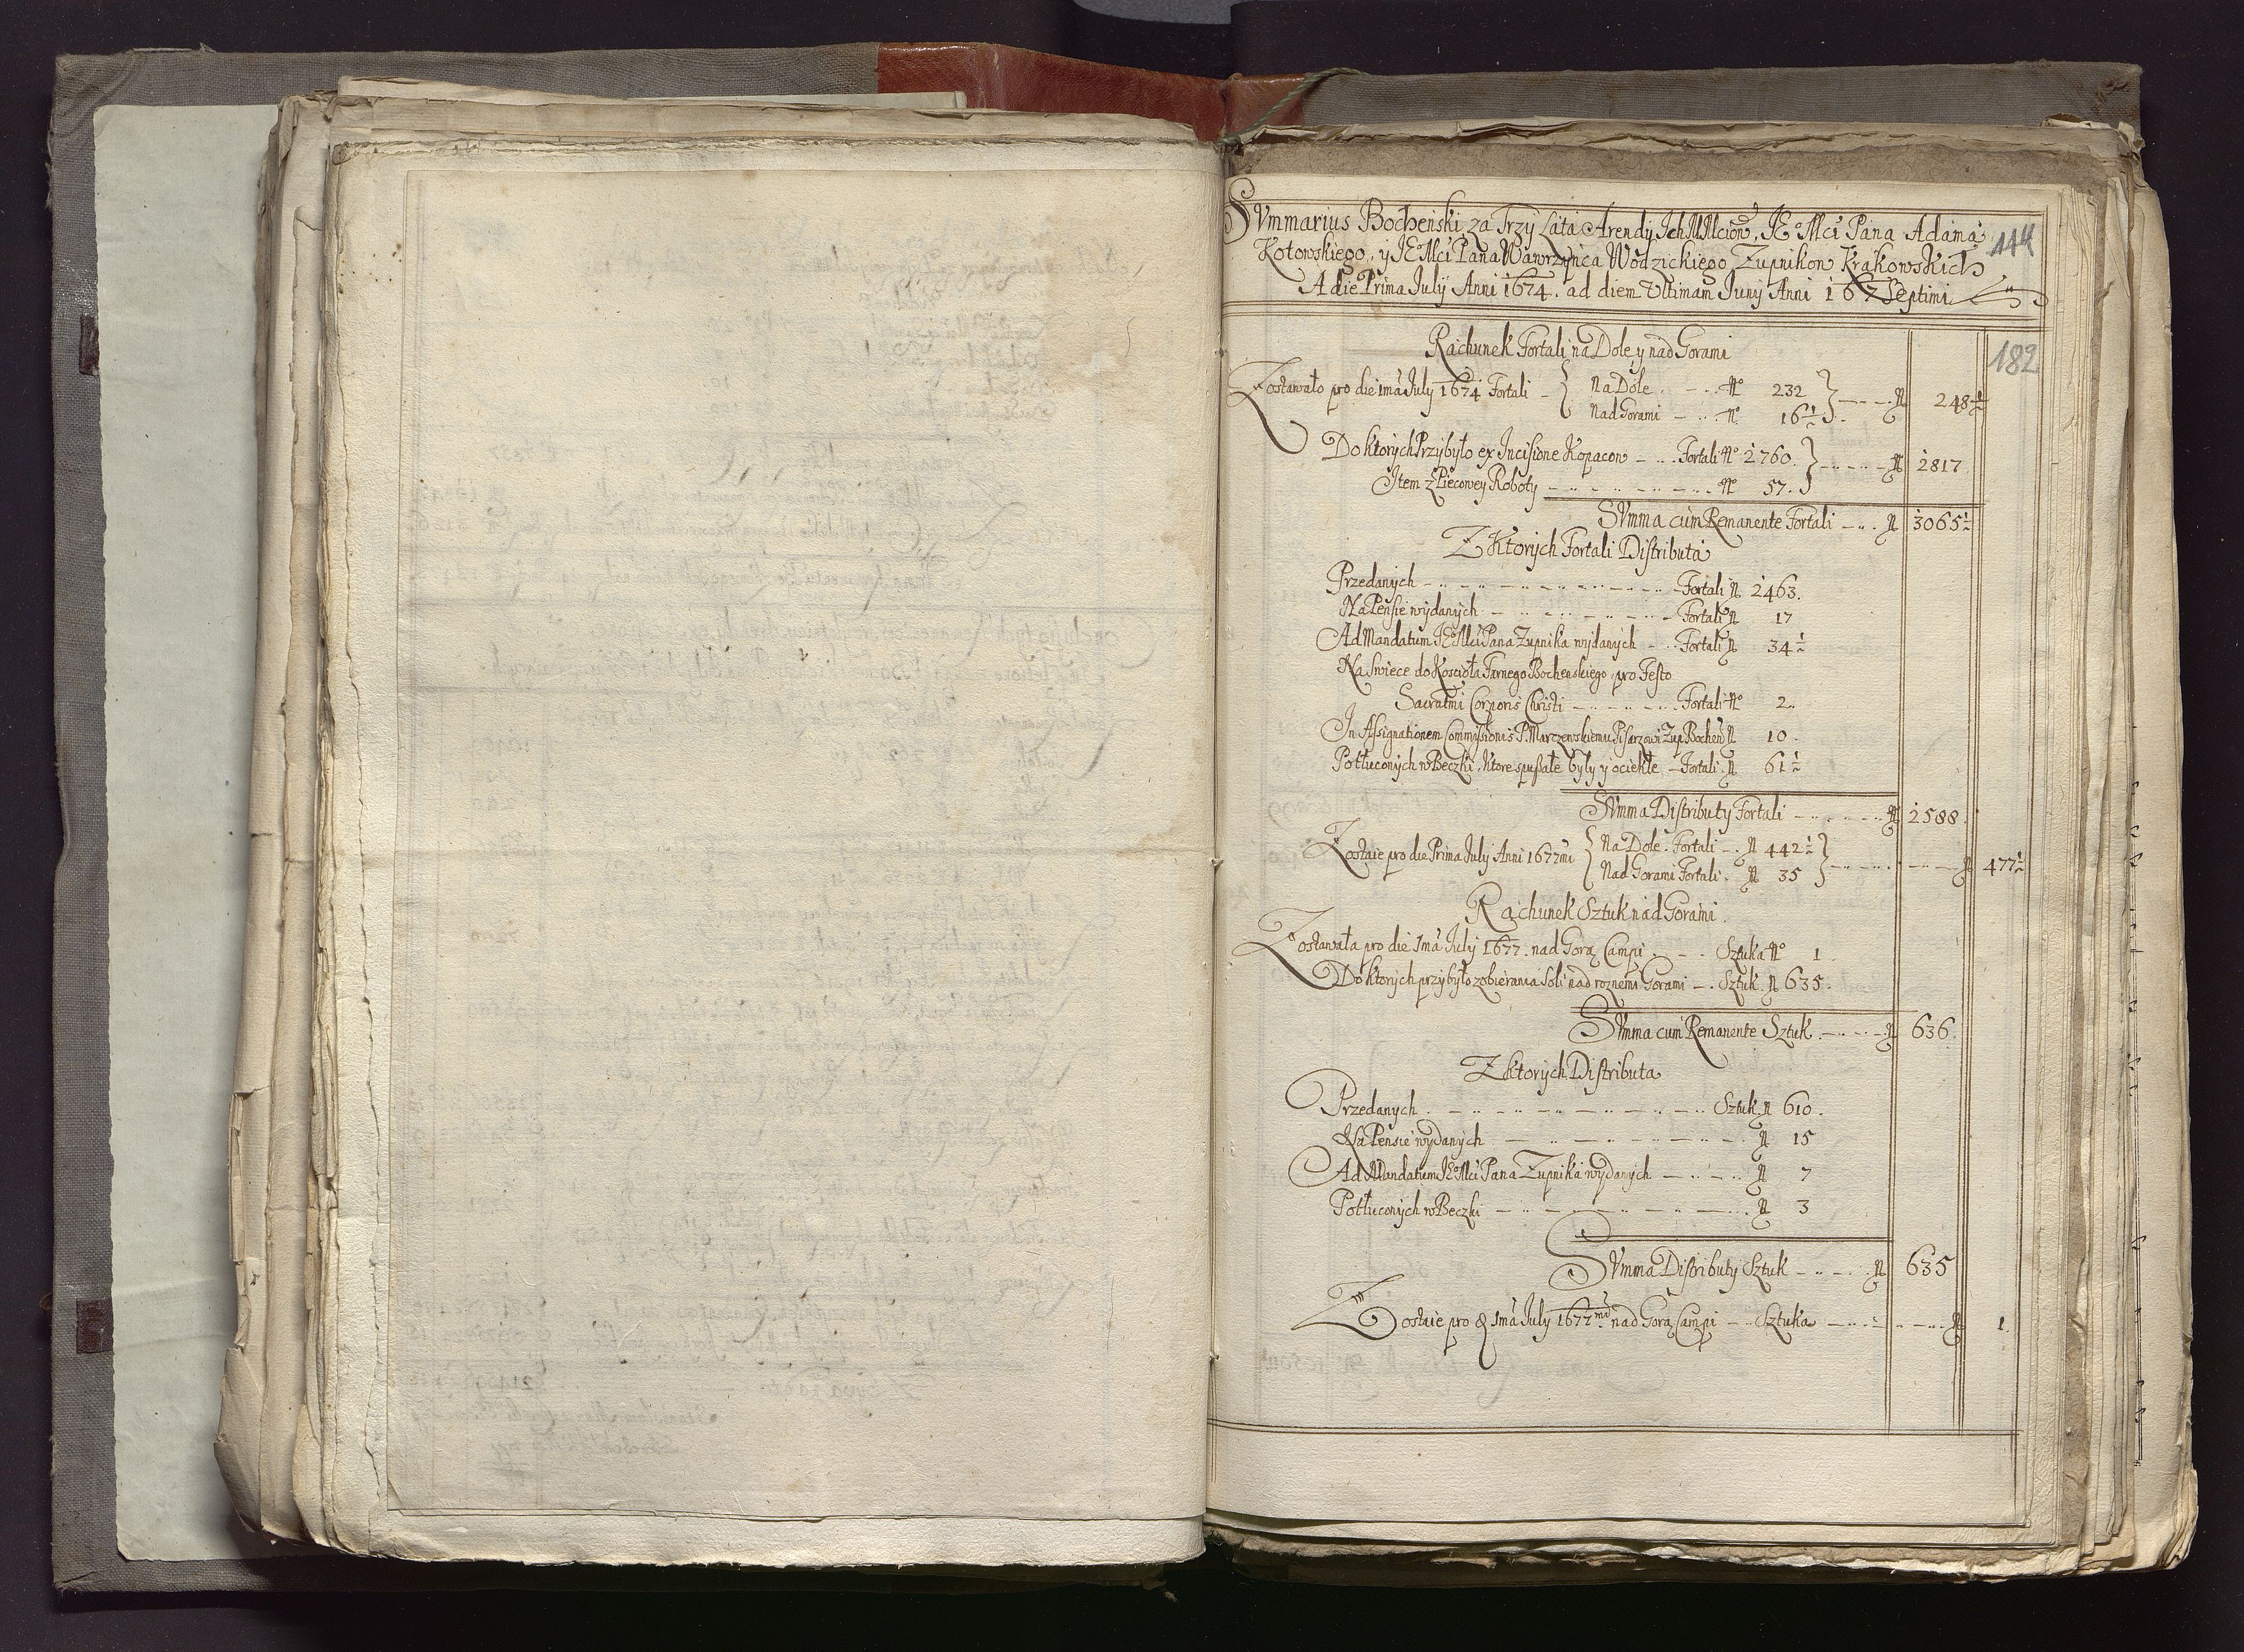 Summarius Bochenski za Trzy Lata Arendy Ich MMciow, JE°Mci Pana Adama
144
Kotowskiego, y JE°Mci Pana Wawrzynca Wodzickiego Zupnikow Krakowskich
A die Prima July Anni 1674. ad diem Ultimam Juny Anni 167 Septimi
Rachunek Fortali na Dole y nad Gorami
182
Zostawało pro die 1ma July 1674 Fortali – { Na Dole – N° 232 } – N 248½
Nad Gorami – N° 16½
Do ktorych Przybyło ex Incisione Kopacow – Fortali N° 2760. } – N 2817
Item z Piecowey Roboty – N° 57.
Summa cum Remanente Fortali – N 3065½
Z Ktorych Fortali Distributa
Przedanych – Fortali N 2463.
Na Pensie wydanych – Fortali N 17
Ad Mandatum JE°Mci Pana Zupnika wydanych – Fortali N 34½
Na Swiece do Koscioła Farnego Bochenskiego, pro Festo
Sacratmi Corporis Christi – Fortali N° 2.
In Assignationem Commissionis P. Marczewskiemu Pisarzowi Zup Bochen N 10.
Potłuconych w Beczki, ktore spußałe były y ociekłe – Fortali N 61½
Summa Distributy Fortali – N 2588.
Zostaie pro die Prima July Anni 1677mi { Na Dole Fortali – N 442½ } – N 477½
Nad Gorami Fortali N 35
Rachunek Sztuk nad Gorami.
Zostawała pro die 1ma July 1677. nad Gorą Campi – Sztuka N° 1.
Do ktorych przybyło z obierania Soli nad roznemi Gorami – Sztuk N 635.
Summa cum Remanente Sztuk – N 636.
Z ktorych Distributa
Przedanych – Sztuk N 610.
Na Pensie wydanych – N 15
Ad Mandatum JE°Mci Pana Zupnika wydanych – N 7
Potłuconych w Beczki – N 3
Summa Distributy Sztuk – N 635
Zostaie pro d 1ma July 1677mi nad Gorą Campi – Sztuka – N 1.